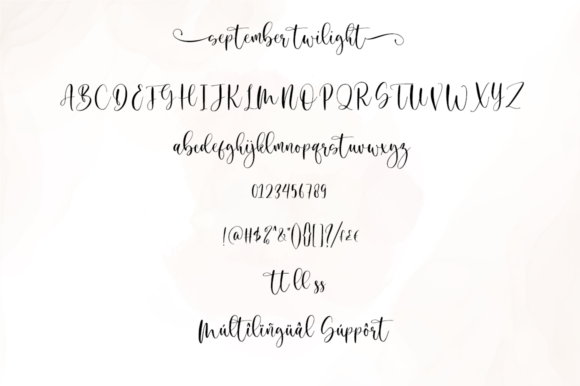 september twilight
ABCDEFGHIJKLMNOPQRSTUVWXYZ
abcdefghijklmnopqrstuvwxyz
0123456789
!@#$%^&*(){}[]?/
tt ll ss
Múltîlïñgüâl Súppôrt